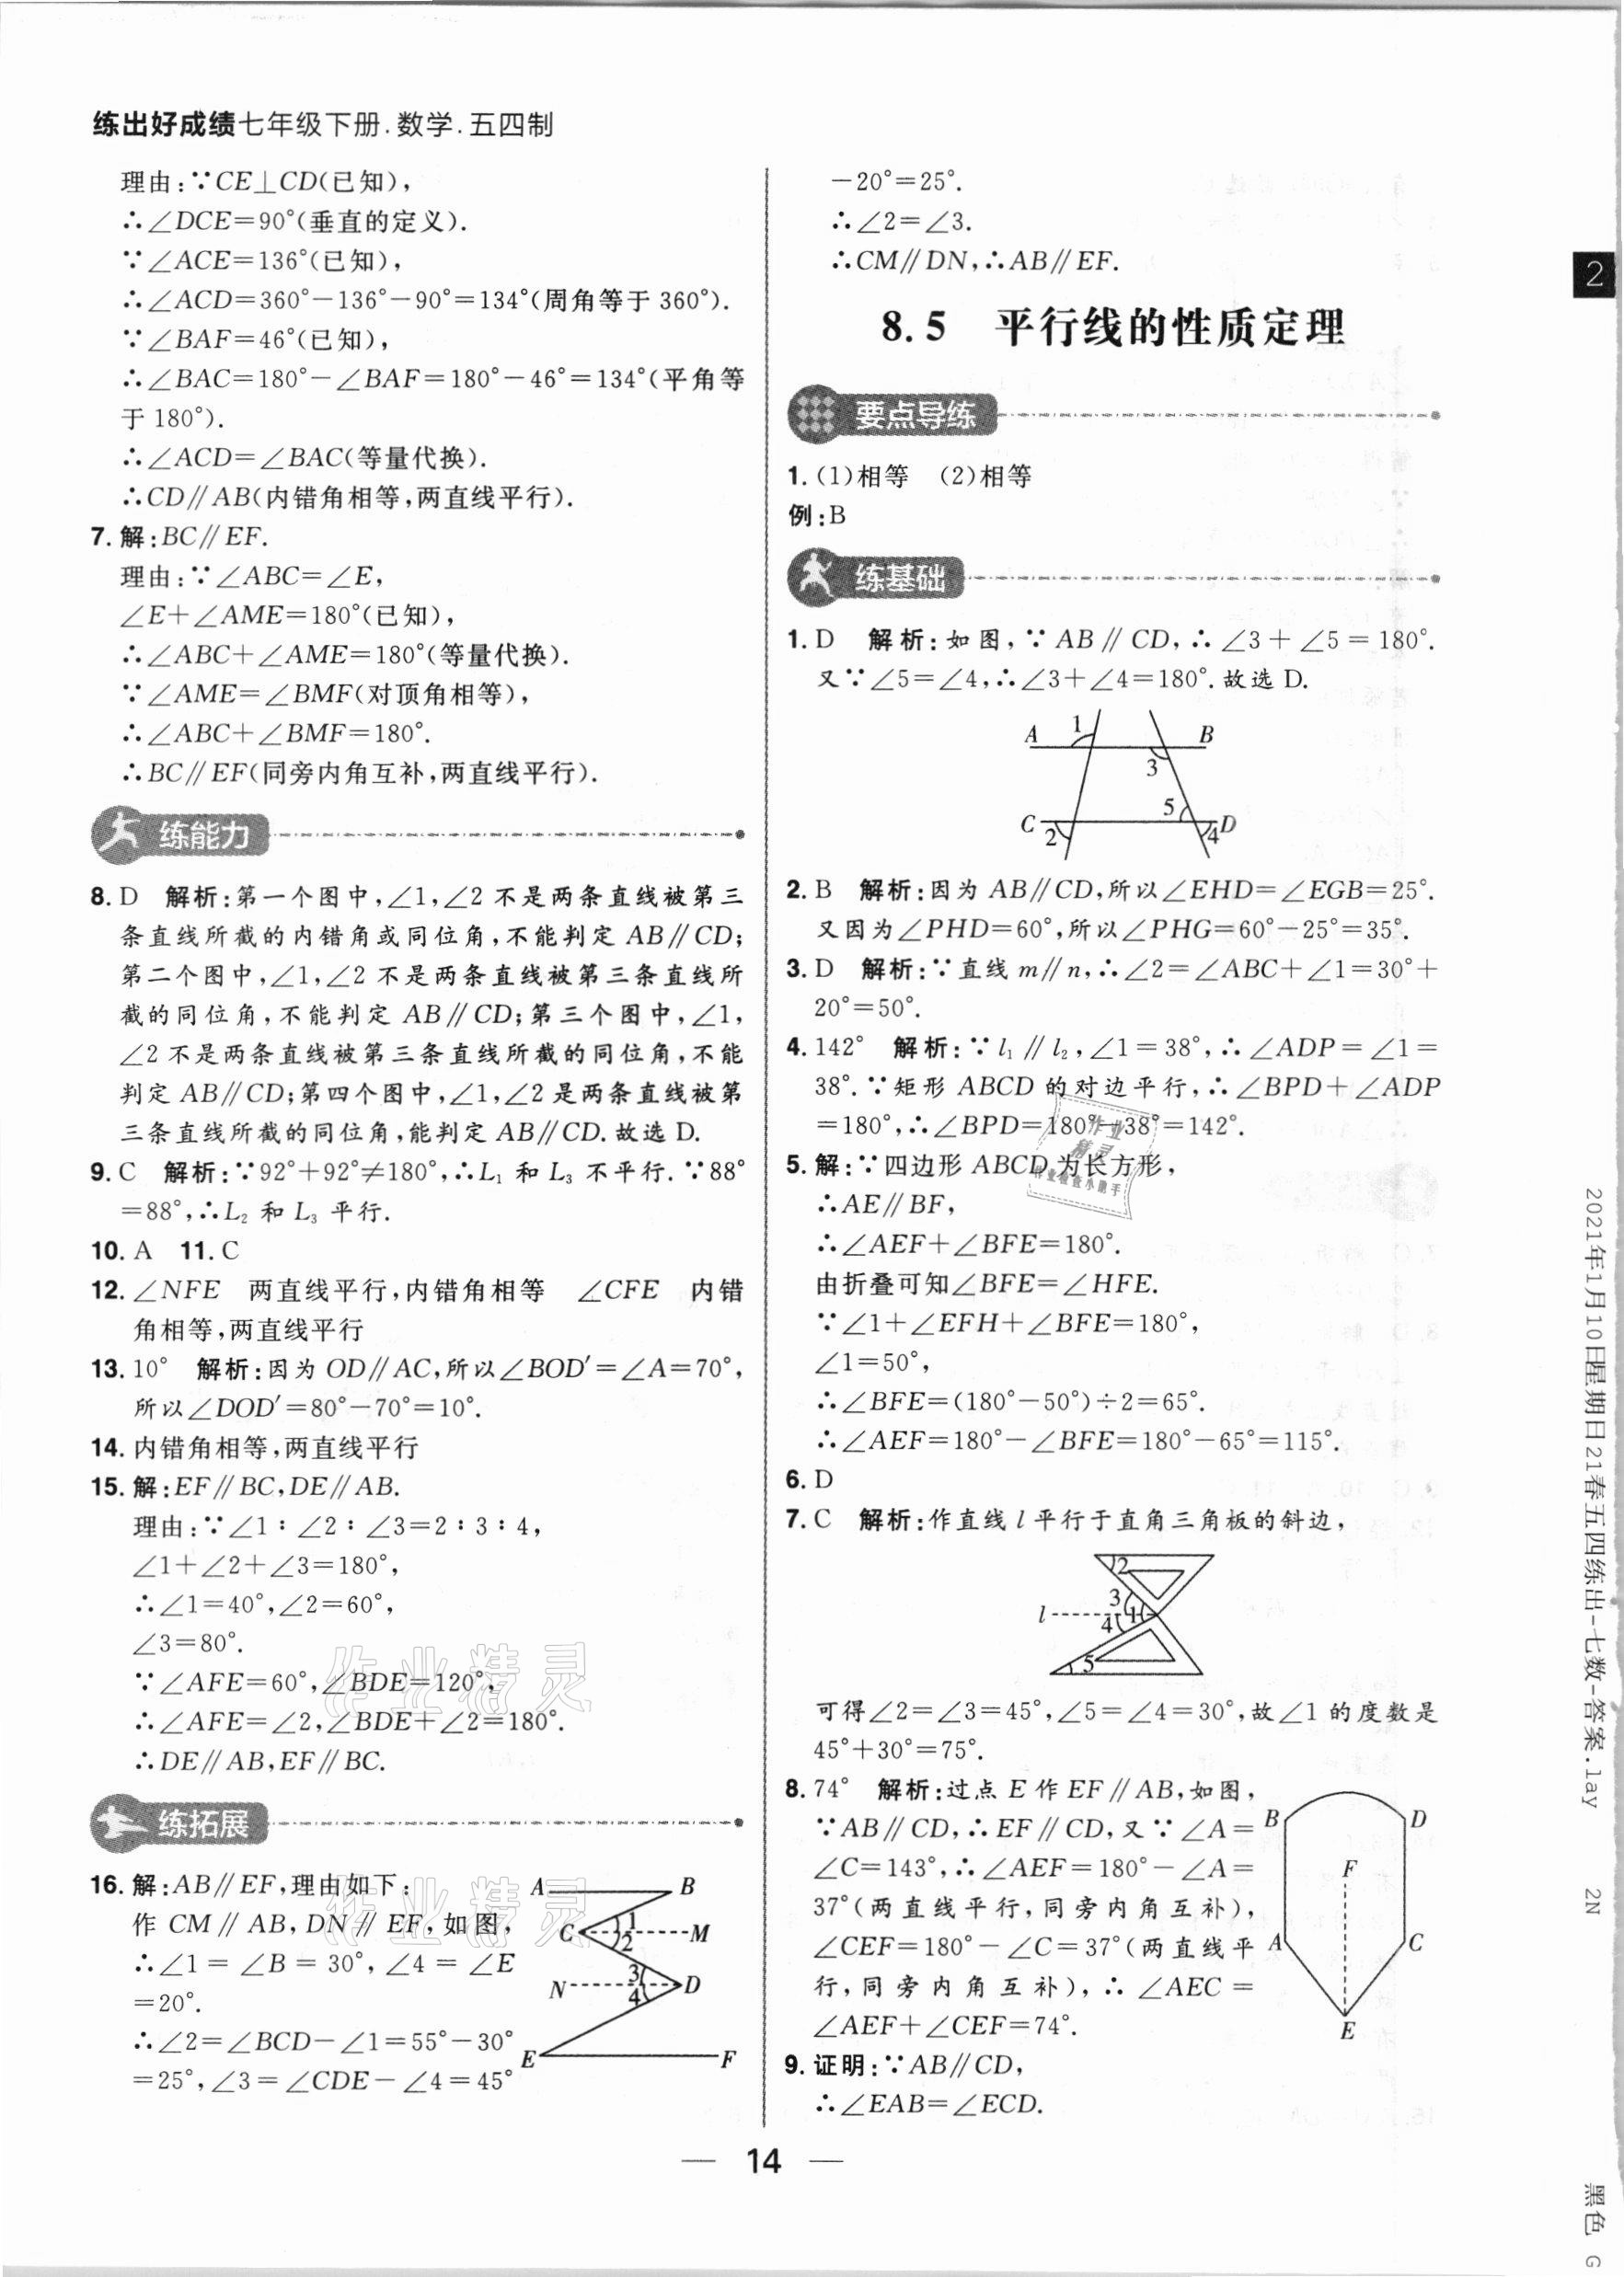 练出好成绩七年级下册.数学.五四制
理由:∵CE⊥CD(已知),
∴∠DCE=90°(垂直的定义).
∵∠ACE=136°(已知),
∴∠ACD=360°-136°-90°=134°(周角等于360°).
∵∠BAF=46°(已知),
∴∠BAC=180°-∠BAF=180°-46°=134°(平角等
于180°).
∴∠ACD=∠BAC(等量代换).
∴CD∥AB(内错角相等,两直线平行).
7.解:BC∥EF.
理由:∵∠ABC=∠E,
∠E+∠AME=180°(已知),
∴∠ABC+∠AME=180°(等量代换).
∵∠AME=∠BMF(对顶角相等),
∴∠ABC+∠BMF=180°.
∴BC∥EF(同旁内角互补,两直线平行).
练能力
8.D 解析:第一个图中,∠1,∠2不是两条直线被第三
条直线所截的内错角或同位角,不能判定AB∥CD;
第二个图中,∠1,∠2不是两条直线被第三条直线所
截的同位角,不能判定AB∥CD;第三个图中,∠1,
∠2不是两条直线被第三条直线所截的同位角,不能
判定AB∥CD;第四个图中,∠1,∠2是两条直线被第
三条直线所截的同位角,能判定AB∥CD.故选D.
9.C 解析:∵92°+92°≠180°,∴L₁和L₃不平行.∵88°
=88°,∴L₂和L₃平行.
10.A 11.C
12.∠NFE 两直线平行,内错角相等 ∠CFE 内错
角相等,两直线平行
13.10° 解析:因为OD∥AC,所以∠BOD′=∠A=70°,
所以∠DOD′=80°-70°=10°.
14.内错角相等,两直线平行
15.解:EF∥BC,DE∥AB.
理由:∵∠1∶∠2∶∠3=2∶3∶4,
∠1+∠2+∠3=180°,
∴∠1=40°,∠2=60°,
∠3=80°.
∵∠AFE=60°,∠BDE=120°,
∴∠AFE=∠2,∠BDE+∠2=180°.
∴DE∥AB,EF∥BC.
练拓展
16.解:AB∥EF,理由如下:
作CM∥AB,DN∥EF,如图,
∴∠1=∠B=30°,∠4=∠E
=20°.
∴∠2=∠BCD-∠1=55°-30°
=25°,∠3=∠CDE-∠4=45°
A B
C 1 2 M
N 3 4 D
E F
作业精灵
作业精灵
-20°=25°.
∴∠2=∠3.
∴CM∥DN,∴AB∥EF.
8.5 平行线的性质定理
要点导练
1.(1)相等 (2)相等
例:B
练基础
1.D 解析:如图,∵AB∥CD,∴∠3+∠5=180°.
又∵∠5=∠4,∴∠3+∠4=180°.故选D.
A 1 B
3
C 2 5 4 D
2.B 解析:因为AB∥CD,所以∠EHD=∠EGB=25°.
又因为∠PHD=60°,所以∠PHG=60°-25°=35°.
3.D 解析:∵直线m∥n,∴∠2=∠ABC+∠1=30°+
20°=50°.
4.142° 解析:∵l₁∥l₂,∠1=38°,∴∠ADP=∠1=
38°.∵矩形ABCD的对边平行,∴∠BPD+∠ADP
=180°,∴∠BPD=180°-38°=142°.
作业
精灵
作业检查小助手
5.解:∵四边形ABCD为长方形,
∴AE∥BF,
∴∠AEF+∠BFE=180°.
由折叠可知∠BFE=∠HFE.
∵∠1+∠EFH+∠BFE=180°,
∠1=50°,
∴∠BFE=(180°-50°)÷2=65°.
∴∠AEF=180°-∠BFE=180°-65°=115°.
6.D
7.C 解析:作直线l平行于直角三角板的斜边,
2
3
l 1
4
5
可得∠2=∠3=45°,∠5=∠4=30°,故∠1的度数是
45°+30°=75°.
8.74° 解析:过点E作EF∥AB,如图,
∵AB∥CD,∴EF∥CD,又∵∠A=
∠C=143°,∴∠AEF=180°-∠A=
37°(两直线平行,同旁内角互补),
∠CEF=180°-∠C=37°(两直线平
行,同旁内角互补),∴∠AEC=
∠AEF+∠CEF=74°.
B D
F
A C
E
9.证明:∵AB∥CD,
∴∠EAB=∠ECD.
— 14 —
2
2021年1月10日星期日21春五四练出-七数-答案.lay 2N
黑色 G